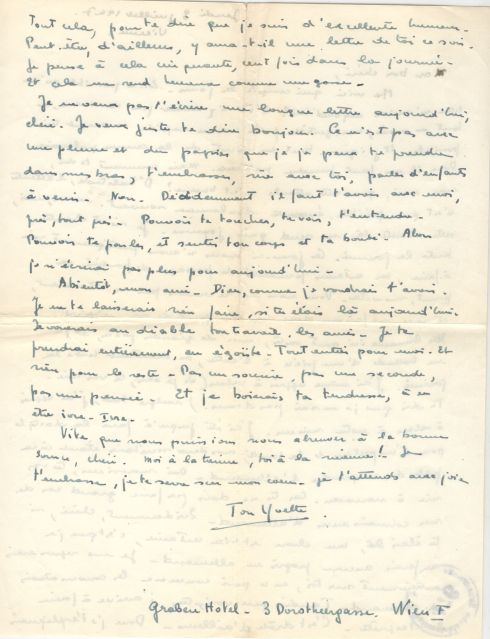 Tout cela, pour te dire que je suis d'excellente humeur.
Peut-être, d'ailleurs, y aura-t-il une lettre de toi ce soir.
Je pense à cela cinquante cent fois dans la journée.
Et cela me rend heureuse comme une gosse.
Je ne veux pas t'écrire une longue lettre aujourd'hui,
chéri. Je veux juste te dire bonjour. Ce n'est pas avec
une plume et du papier que je je peux te prendre
dans mes bras, t'embrasser, rire avec toi, parler d'enfants
à venir. Non. Décidemment il faut t'avoir avec moi,
près, tout près. Pouvoir te toucher, te voir, t'entendre.
Pouvoir te parler, et sentir ton corps et ta bonté. Alors
je n'écrirai pas plus pour aujourd'hui.
A bientôt, mon ami. Dieu, comme je voudrais t'avoir.
Je ne te laisserais rien faire, si tu étais là aujourd'hui.
J'enverrais au diable ton travail, les amis. Je te
prendrai entièrement, en égoïste. Tout entier pour moi. Et
rien pour le reste. Pas un sourire, pas une seconde,
pas une pensée. Et je boirais ta tendresse, à en
être ivre. Ivre.
Vite que nous puissions nous abreuver à la bonne
source, chéri. Moi à la tienne, toi à la mienne! Je
t'embrasse, je te serre sur mon coeur. Je t'attends avec joie
Ton Yvette
Graben Hotel - 3 Dorotheergasse. Wien I